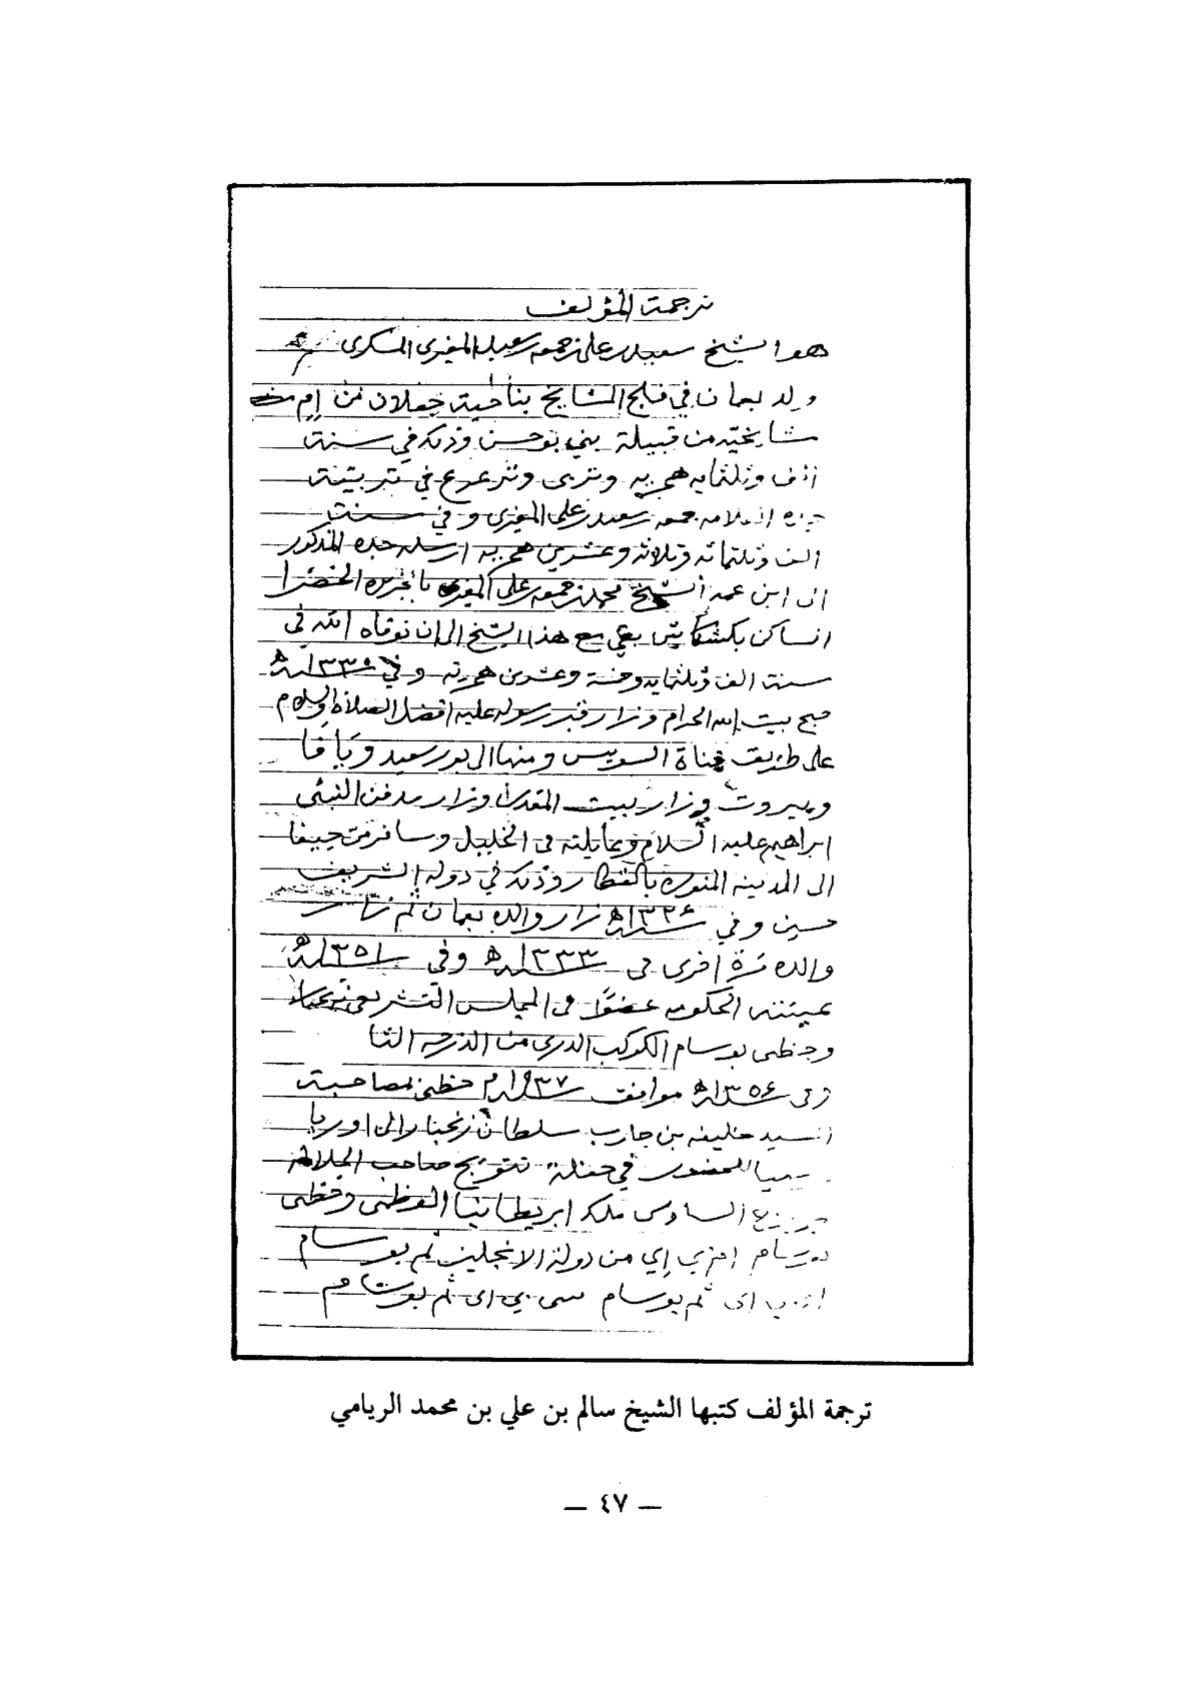 ترجمة المؤلف
هو الشيخ سعيد بن علي بن جمعه بن سعيد المغيري المسكري
ولد بعمان في فلج المشايخ بناحية جعلان من أم
مشايخيّه من قبيلة بني بو حسن وذلك في سنة
الف وثلثمايه هجريه وتربى وترعرع في تربيته
جده العلامه جمعه بن سعيد بن علي المغيري وفي سنت
الف وثلثمائه وثلاثه وعشرين هجريه ارسله جده المذكور
الى ابن عمه الشيخ محمد بن جمعه بن علي المغيري بالجزيره الخضرا
الساكن بكشكاش بقي مع هذا الشيخ الى ان توفاه الله في
سنت الف وثلثمايه وخمسة وعشرين هجريه وفي سنة
حج بيت الله الحرام وزار قبر رسوله عليه افضل الصلاة والسلام
على طريق قناة السويس ومنها الى بورسعيد ويافا
وبيروت وزار بيت المقدس وزار مدفن النبي
ابراهيم عليه السلام وعايلته في الخليل وسافر من حيفا
الى المدينه المنوره بالقطار وذلك في دولة الشريف
حسين وفي سنة ١٣٢٦ه زار والده بعمان ثم زار
والده مرة اخرى في سنة ١٣٣٣ه وفي سنة ١٣٥١ه
عينته الحكومه عضوًا في المجلس التشريعي بزنجبار
وحظى بوسام الكوكب الدري من الدرجه الثا
وفي سنة ١٣٥٦ه موافق سنة ١٩٣٧م حظى بمصاحبة
السيد خليفه بن حارب سلطان زنجبار الى اوربا
للحضور في حفلة تتويج صاحب الجلالة
جورج السادس ملك ابريطانيا العظمى وحظى
بوسام ام بي إي من دولة الانجليز ثم بوسام
او بي اى ثم بوسام سى بي اى ثم بوسام
ترجمة المؤلف كتبها الشيخ سالم بن علي بن محمد الريامي
— ٤٧ —